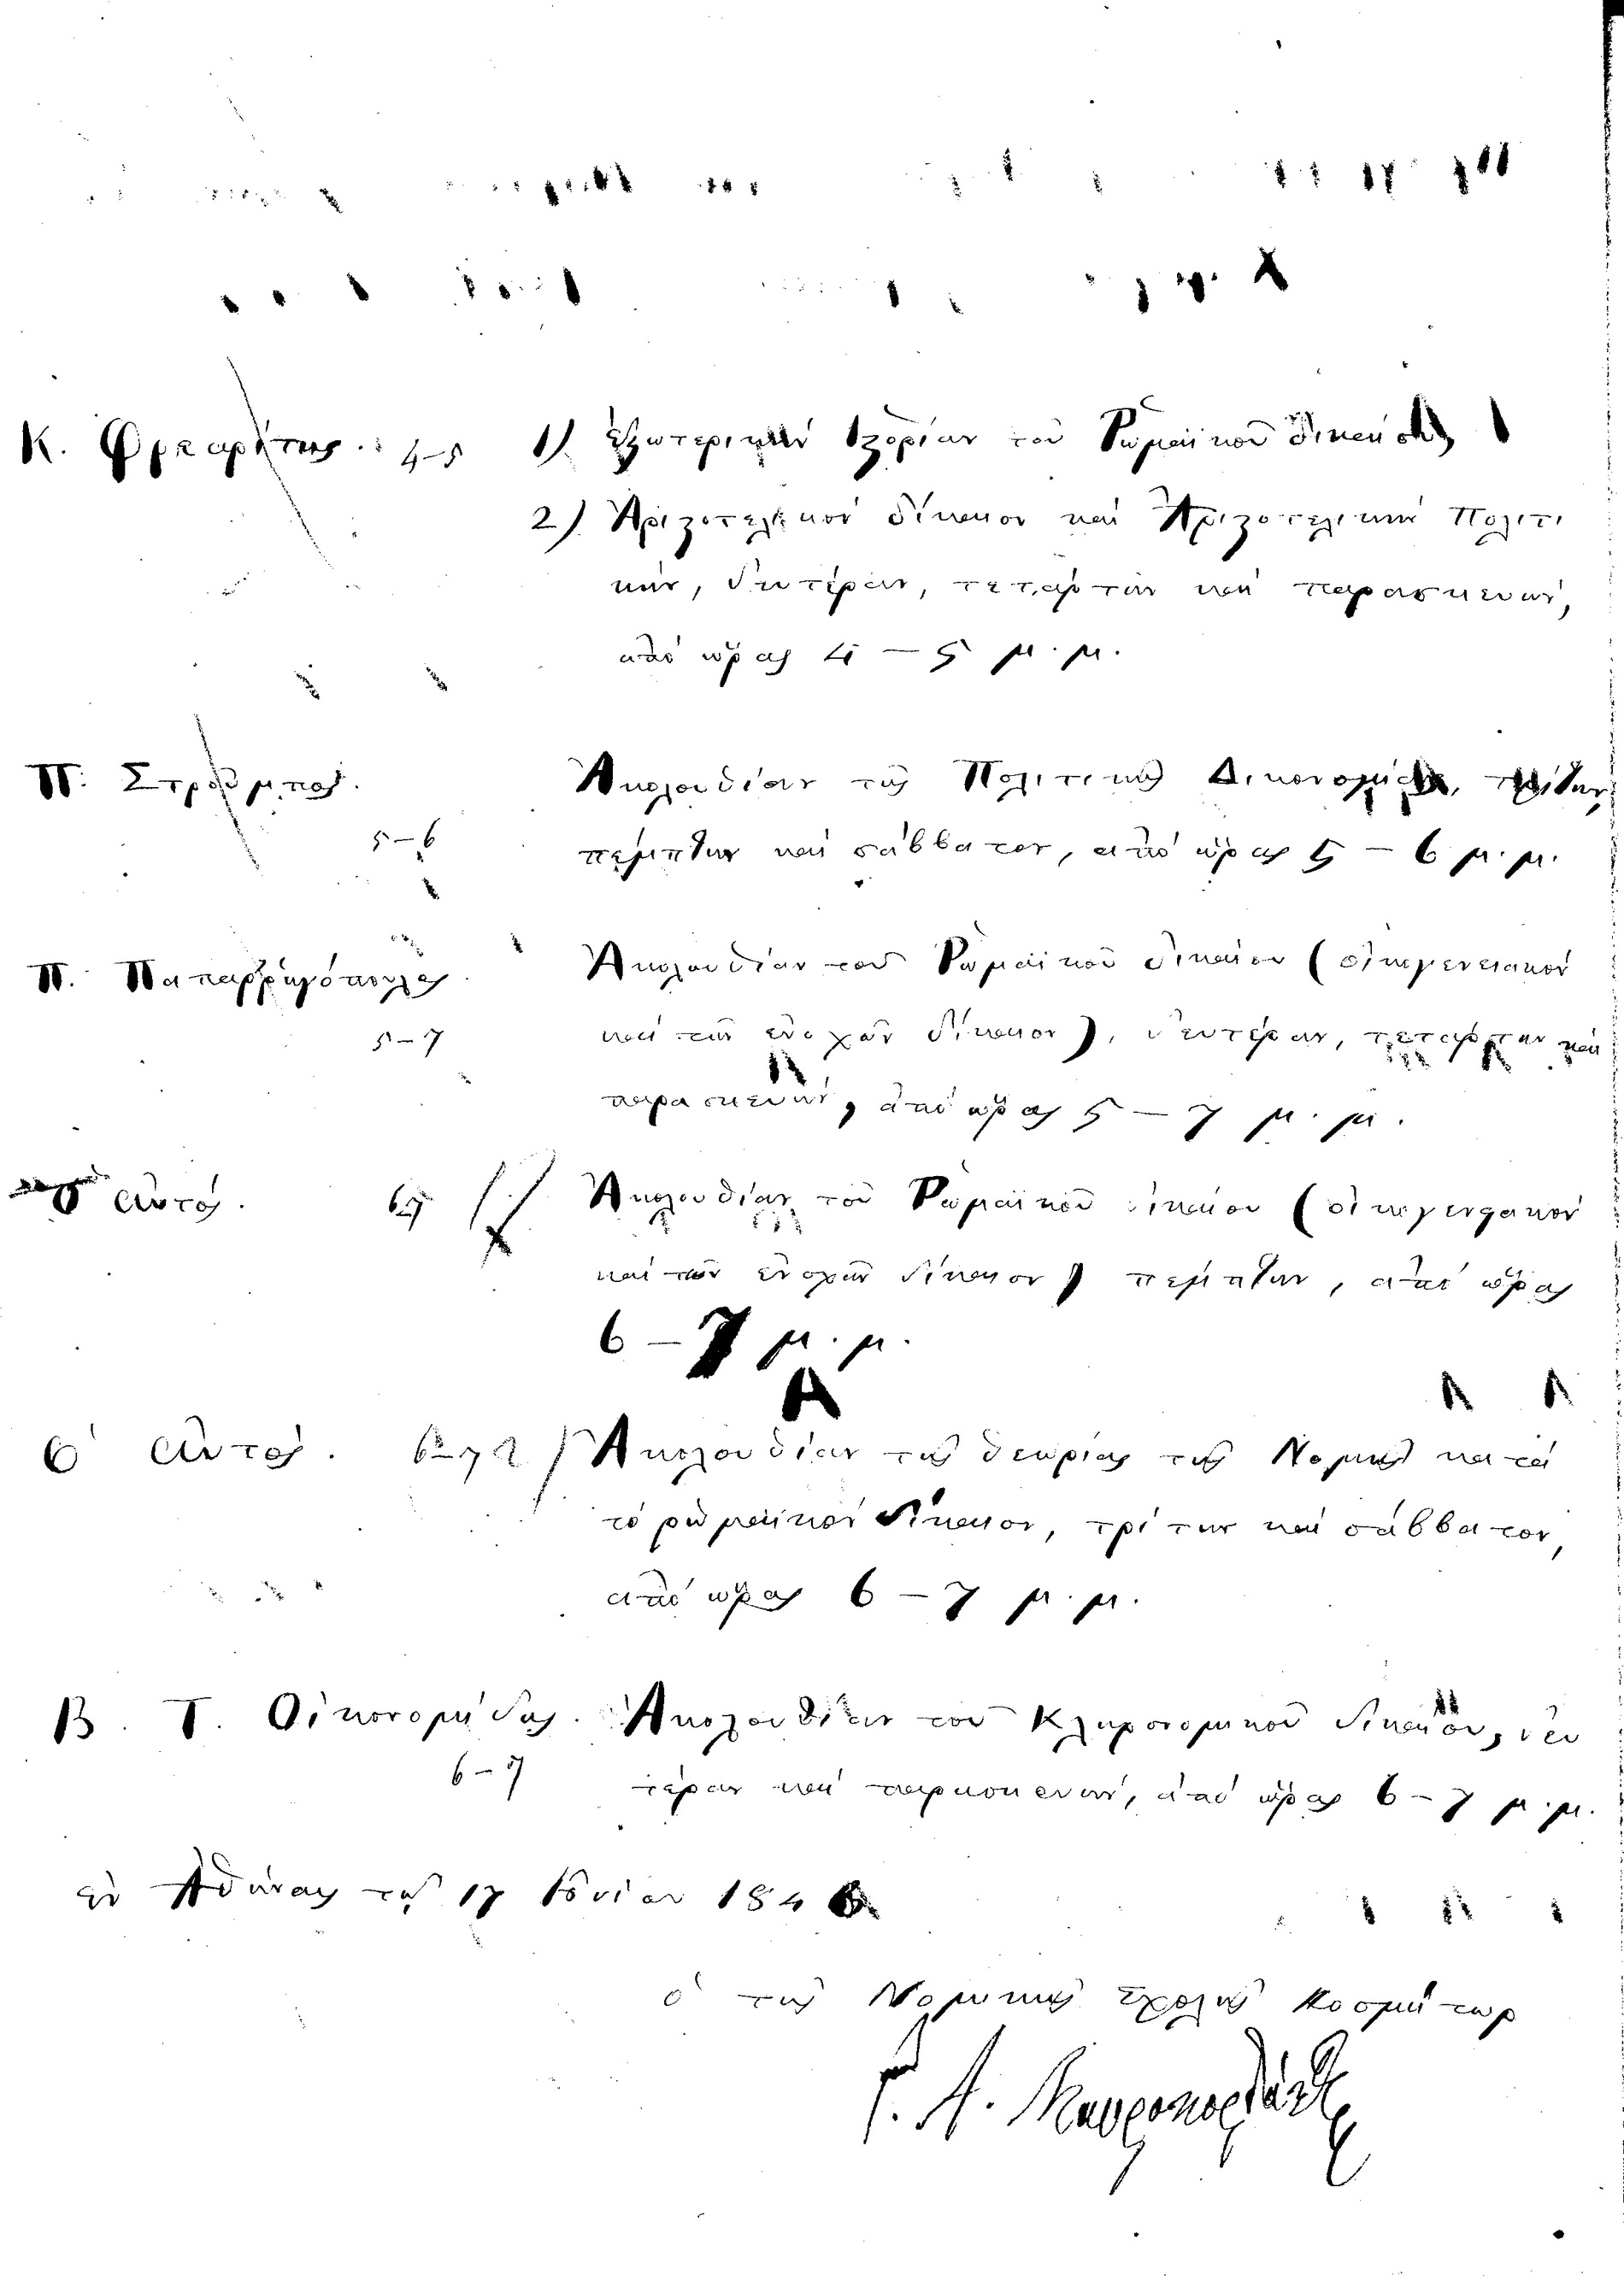 Κ. Φρεαρήτης. 4-5 1) ἐξωτερικήν ἱστορίαν τοῦ Ῥωμαϊκοῦ δικαίου
2) Ἀριστοτελικόν δίκαιον καί Ἀριστοτελικήν Πολιτι
κήν, δευτέραν, τετάρτην καί παρασκευήν,
ἀπό ὥρας 4 – 5 μ. μ.
Π. Στροῦμπος. Ἀκολουθίαν τῆς Πολιτικῆς Οἰκονομίας, τρίτην,
5 – 6 πέμπτην καί σάββατον, ἀπό ὥρας 5 – 6 μ. μ.
Π. Παπαρρηγόπουλος Ἀκολουθίαν τοῦ Ῥωμαϊκοῦ δικαίου (οἰκογενειακόν
5 – 7 καί τῶν ἐνοχῶν δίκαιον), δευτέραν, τετάρτην καί
παρασκευήν, ἀπό ὥρας 5 – 7 μ. μ.
Ὁ αὐτός. 6-7 Ἀκολουθίαν τοῦ Ῥωμαϊκοῦ δικαίου (οἰκογενειακόν
καί τῶν ἐνοχῶν δίκαιον) πέμπτην, ἀπό ὥρας
6 – 7 μ. μ.
Ὁ αὐτός. 6-7 2/ Ἀκολουθίαν τῆς θεωρίας τῆς Νομῆς κατά
τό ρωμαϊκόν δίκαιον, τρίτην καί σάββατον,
ἀπό ὥρας 6 – 7 μ. μ.
Β. Γ. Οἰκονομίδης. Ἀκολουθίαν τοῦ Κληρονομικοῦ δικαίου, δευ
6 – 7 τέραν καί παρασκευήν, ἀπό ὥρας 6 – 7 μ. μ.
ἐν Ἀθήναις τῇ 17 Ἰουνίου 184
ὁ τῆς Νομικῆς σχολῆς κοσμήτωρ
Γ. Α. Μαυροκορδάτος